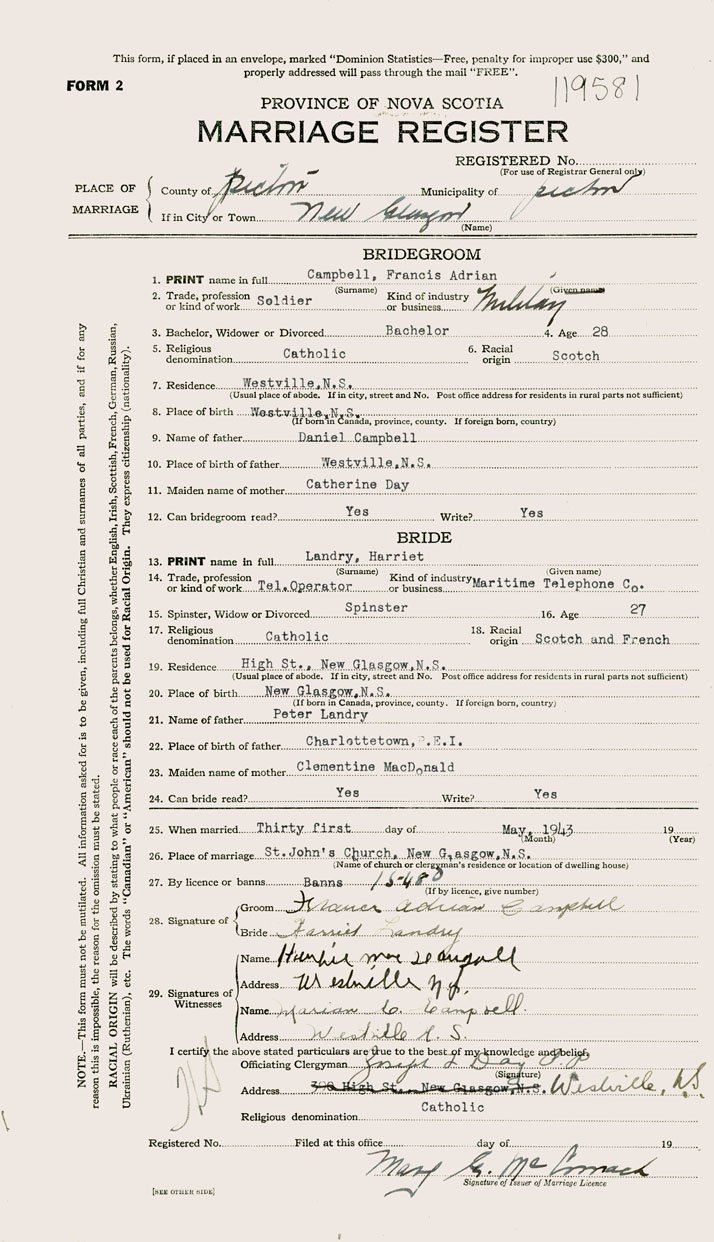 This form, if placed in an envelope, marked "Dominion Statistics—Free, penalty for improper use $300," and
properly addressed will pass through the mail "FREE".
FORM 2
119581
PROVINCE OF NOVA SCOTIA
MARRIAGE REGISTER
REGISTERED No.
(For use of Registrar General only)
PLACE OF MARRIAGE
County of Pictou Municipality of Pictou
If in City or Town New Glasgow
(Name)
BRIDEGROOM
1. PRINT name in full Campbell, Francis Adrian
(Surname) (Given name)
2. Trade, profession or kind of work Soldier Kind of industry or business Military
3. Bachelor, Widower or Divorced Bachelor 4. Age 28
5. Religious denomination Catholic 6. Racial origin Scotch
7. Residence Westville,N.S.
(Usual place of abode. If in city, street and No. Post office address for residents in rural parts not sufficient)
8. Place of birth Westville,N.S.
(If born in Canada, province, county. If foreign born, country)
9. Name of father Daniel Campbell
10. Place of birth of father Westville,N.S.
11. Maiden name of mother Catherine Day
12. Can bridegroom read? Yes Write? Yes
BRIDE
13. PRINT name in full Landry, Harriet
(Surname) (Given name)
14. Trade, profession or kind of work Tel.Operator Kind of industry or business Maritime Telephone Co.
15. Spinster, Widow or Divorced Spinster 16. Age 27
17. Religious denomination Catholic 18. Racial origin Scotch and French
19. Residence High St., New Glasgow,N.S.
(Usual place of abode. If in city, street and No. Post office address for residents in rural parts not sufficient)
20. Place of birth New Glasgow,N.S.
(If born in Canada, province, county. If foreign born, country)
21. Name of father Peter Landry
22. Place of birth of father Charlottetown, P.E.I.
23. Maiden name of mother Clementine MacDonald
24. Can bride read? Yes Write? Yes
25. When married Thirty first day of May, 1943 19
(Month) (Year)
26. Place of marriage St.John's Church, New Glasgow,N.S.
(Name of church or clergyman's residence or location of dwelling house)
27. By licence or banns Banns 15480
(If by licence, give number)
28. Signature of
Groom Francis Adrian Campbell
Bride Harriet Landry
29. Signatures of Witnesses
Name Mac Dougall
Address Westville N.S.
Name Marian C. Campbell.
Address Westville N.S.
I certify the above stated particulars are true to the best of my knowledge and belief.
Officiating Clergyman Joseph L Day P.P.
(Signature)
Address 300 High St., New Glasgow,N.S. Westville, N.S.
Religious denomination Catholic
Registered No. Filed at this office day of 19
Mary G. McCormack
Signature of Issuer of Marriage Licence
[SEE OTHER SIDE]
NOTE.—This form must not be mutilated. All information asked for is to be given, including full Christian and surnames of all parties, and if for any
reason this is impossible, the reason for the omission must be stated.
RACIAL ORIGIN will be described by stating to what people or race each of the parents belongs, whether English, Irish, Scottish, French, German, Russian,
Ukrainian (Ruthenian), etc. The words "Canadian" or "American" should not be used for Racial Origin. They express citizenship (nationality).